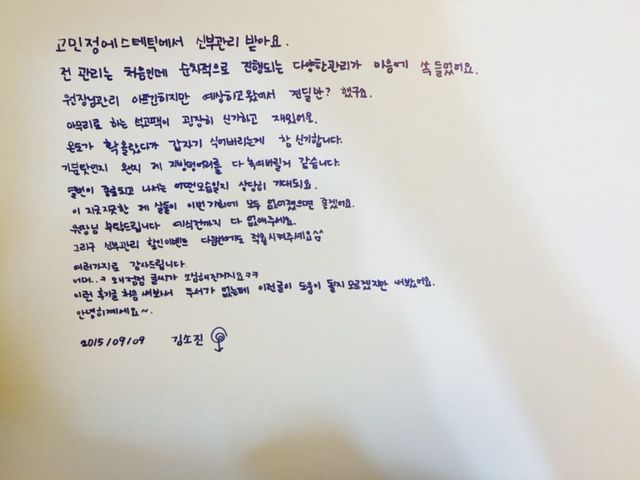 고민정에스테틱에서 신부관리 받아요.
전 관리는 처음인데 순차적으로 진행되는 다양한관리가 마음에 쏙 들었어요.
원장님관리 아프긴하지만 예상하고왔어서 견딜만? 했구요.
마무리로 하는 석고팩이 굉장히 신기하고 재밌어요.
온도가 확올랐다가 갑자기 식어버리는게 참 신기합니다.
기분탓인지 왠지 제 지방덩어리를 다 녹여버릴거 같습니다.
열번이 종료되고 나서는 어떤모습일지 상당히 기대되요.
이 지긋지긋한 제 살들이 이번기회에 모두 없어졌으면 좋겠어요.
원장님 부탁드립니다 예식전까지 다 없애주세요.
그리구 신부관리 할인이벤트 다음번에도 적립시켜주세요^^
여러가지로 감사드립니다.
왜점점 글씨가 조잡해진거지요ㅋㅋ
이런 후기글 처음 써봐서 두서가 없는데 이런글이 도움이 될지 모르겠지만 써봤어요.
안녕히계세요~.
2015/09/09 김소진